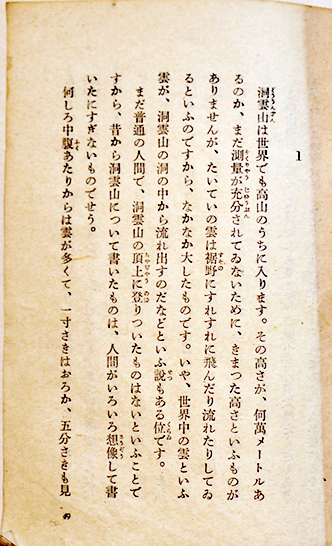 1
洞雲山は世界でも高山のうちに入ります。その高さが、何萬メートルあ
るのか、まだ測量が充分されてゐないために、きまつた高さといふものが
ありませんが、たいていの雲は裾野にすれすれに飛んだり流れたりしてゐ
るといふのですから、なかなか大したものです。いや、世界中の雲といふ
雲が、洞雲山の洞の中から流れ出すのだなどといふ說もある位です。
まだ普通の人間で、洞雲山の頂上に登りついたものはないといふことで
すから、昔から洞雲山について書いたものは、人間がいろいろ想像して書
いたにすぎないものでせう。
何しろ中腹あたりからは雲が多くて、一寸さきはおろか、五分さきも見